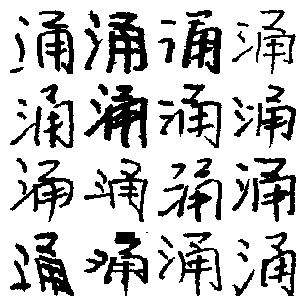 涌涌涌涌
涌涌涌涌
涌涌涌涌
涌涌涌涌